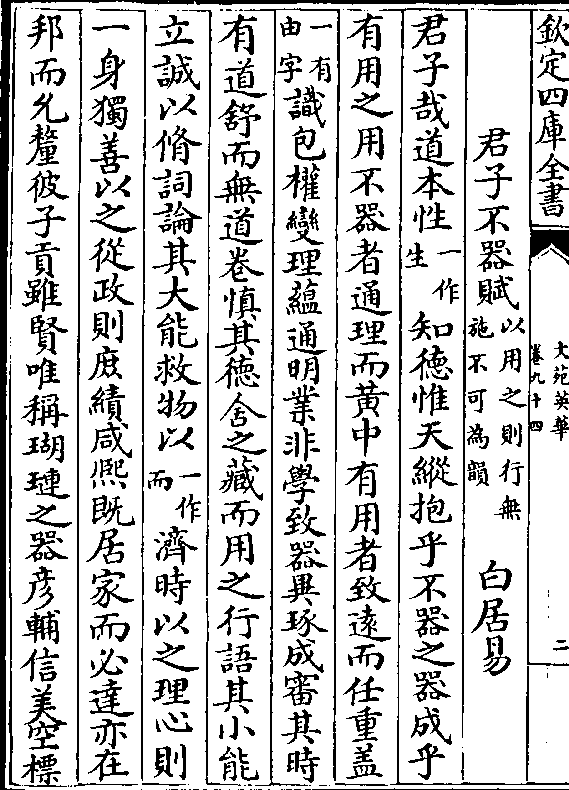 欽定四庫全書
文苑英華
卷九十四
二
君子不器賦以用之則行無施不可為韻 白居易
君子哉道本性一作生知德惟天縱抱乎不器之器成乎
有用之用不器者通理而黃中有用者致逺而任重盖
一有由字識包權變理藴通明業非學致器異琢成審其時
有道舒而無道卷慎其徳舍之藏而用之行語其小能
立誠以脩詞論其大能救物以一作而濟時以之理心則
一身獨善以之從政則庶績咸熈既居家而必達亦在
邦而允釐彼子貢雖賢唯稱瑚璉之器彦輔信美空標